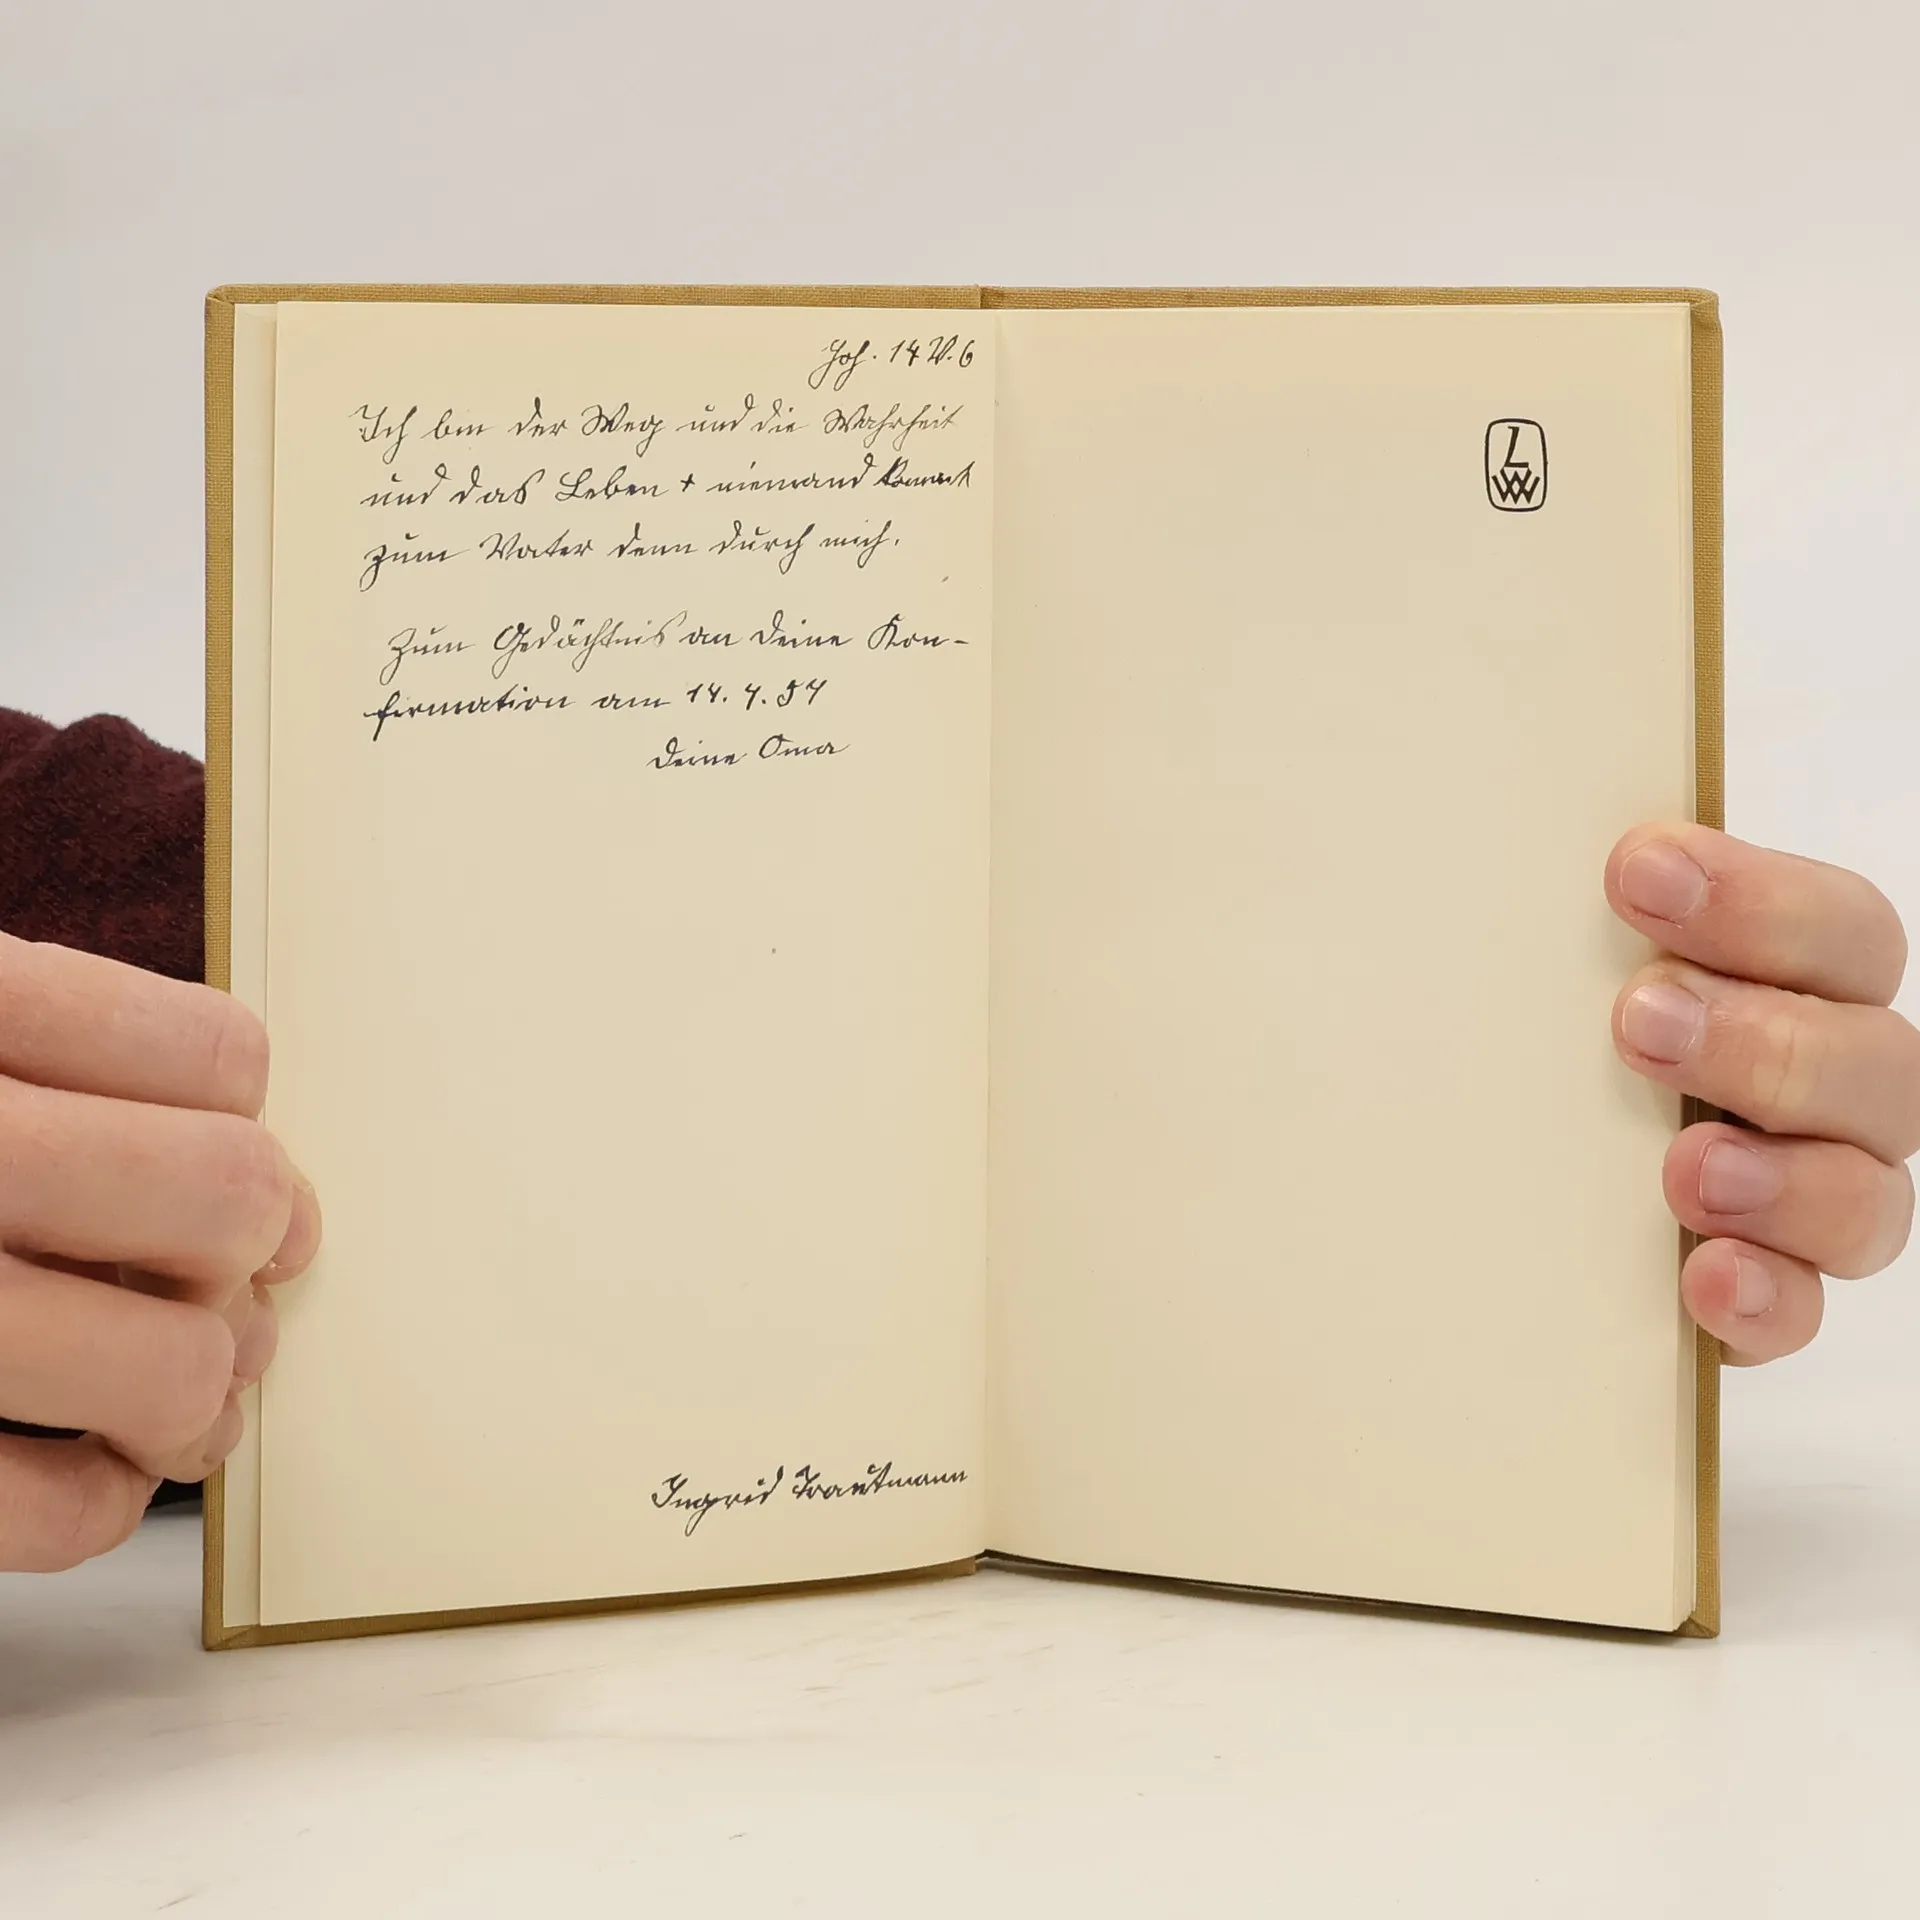 Joh. 14 V. 6
Ich bin der Weg und die Wahrheit
und das Leben + niemand kommt
zum Vater denn durch mich.
Zum Gedächtnis an deine Kon-
firmation am 14. 4. 57
deine Oma
Ingrid Trautmann
L
VW